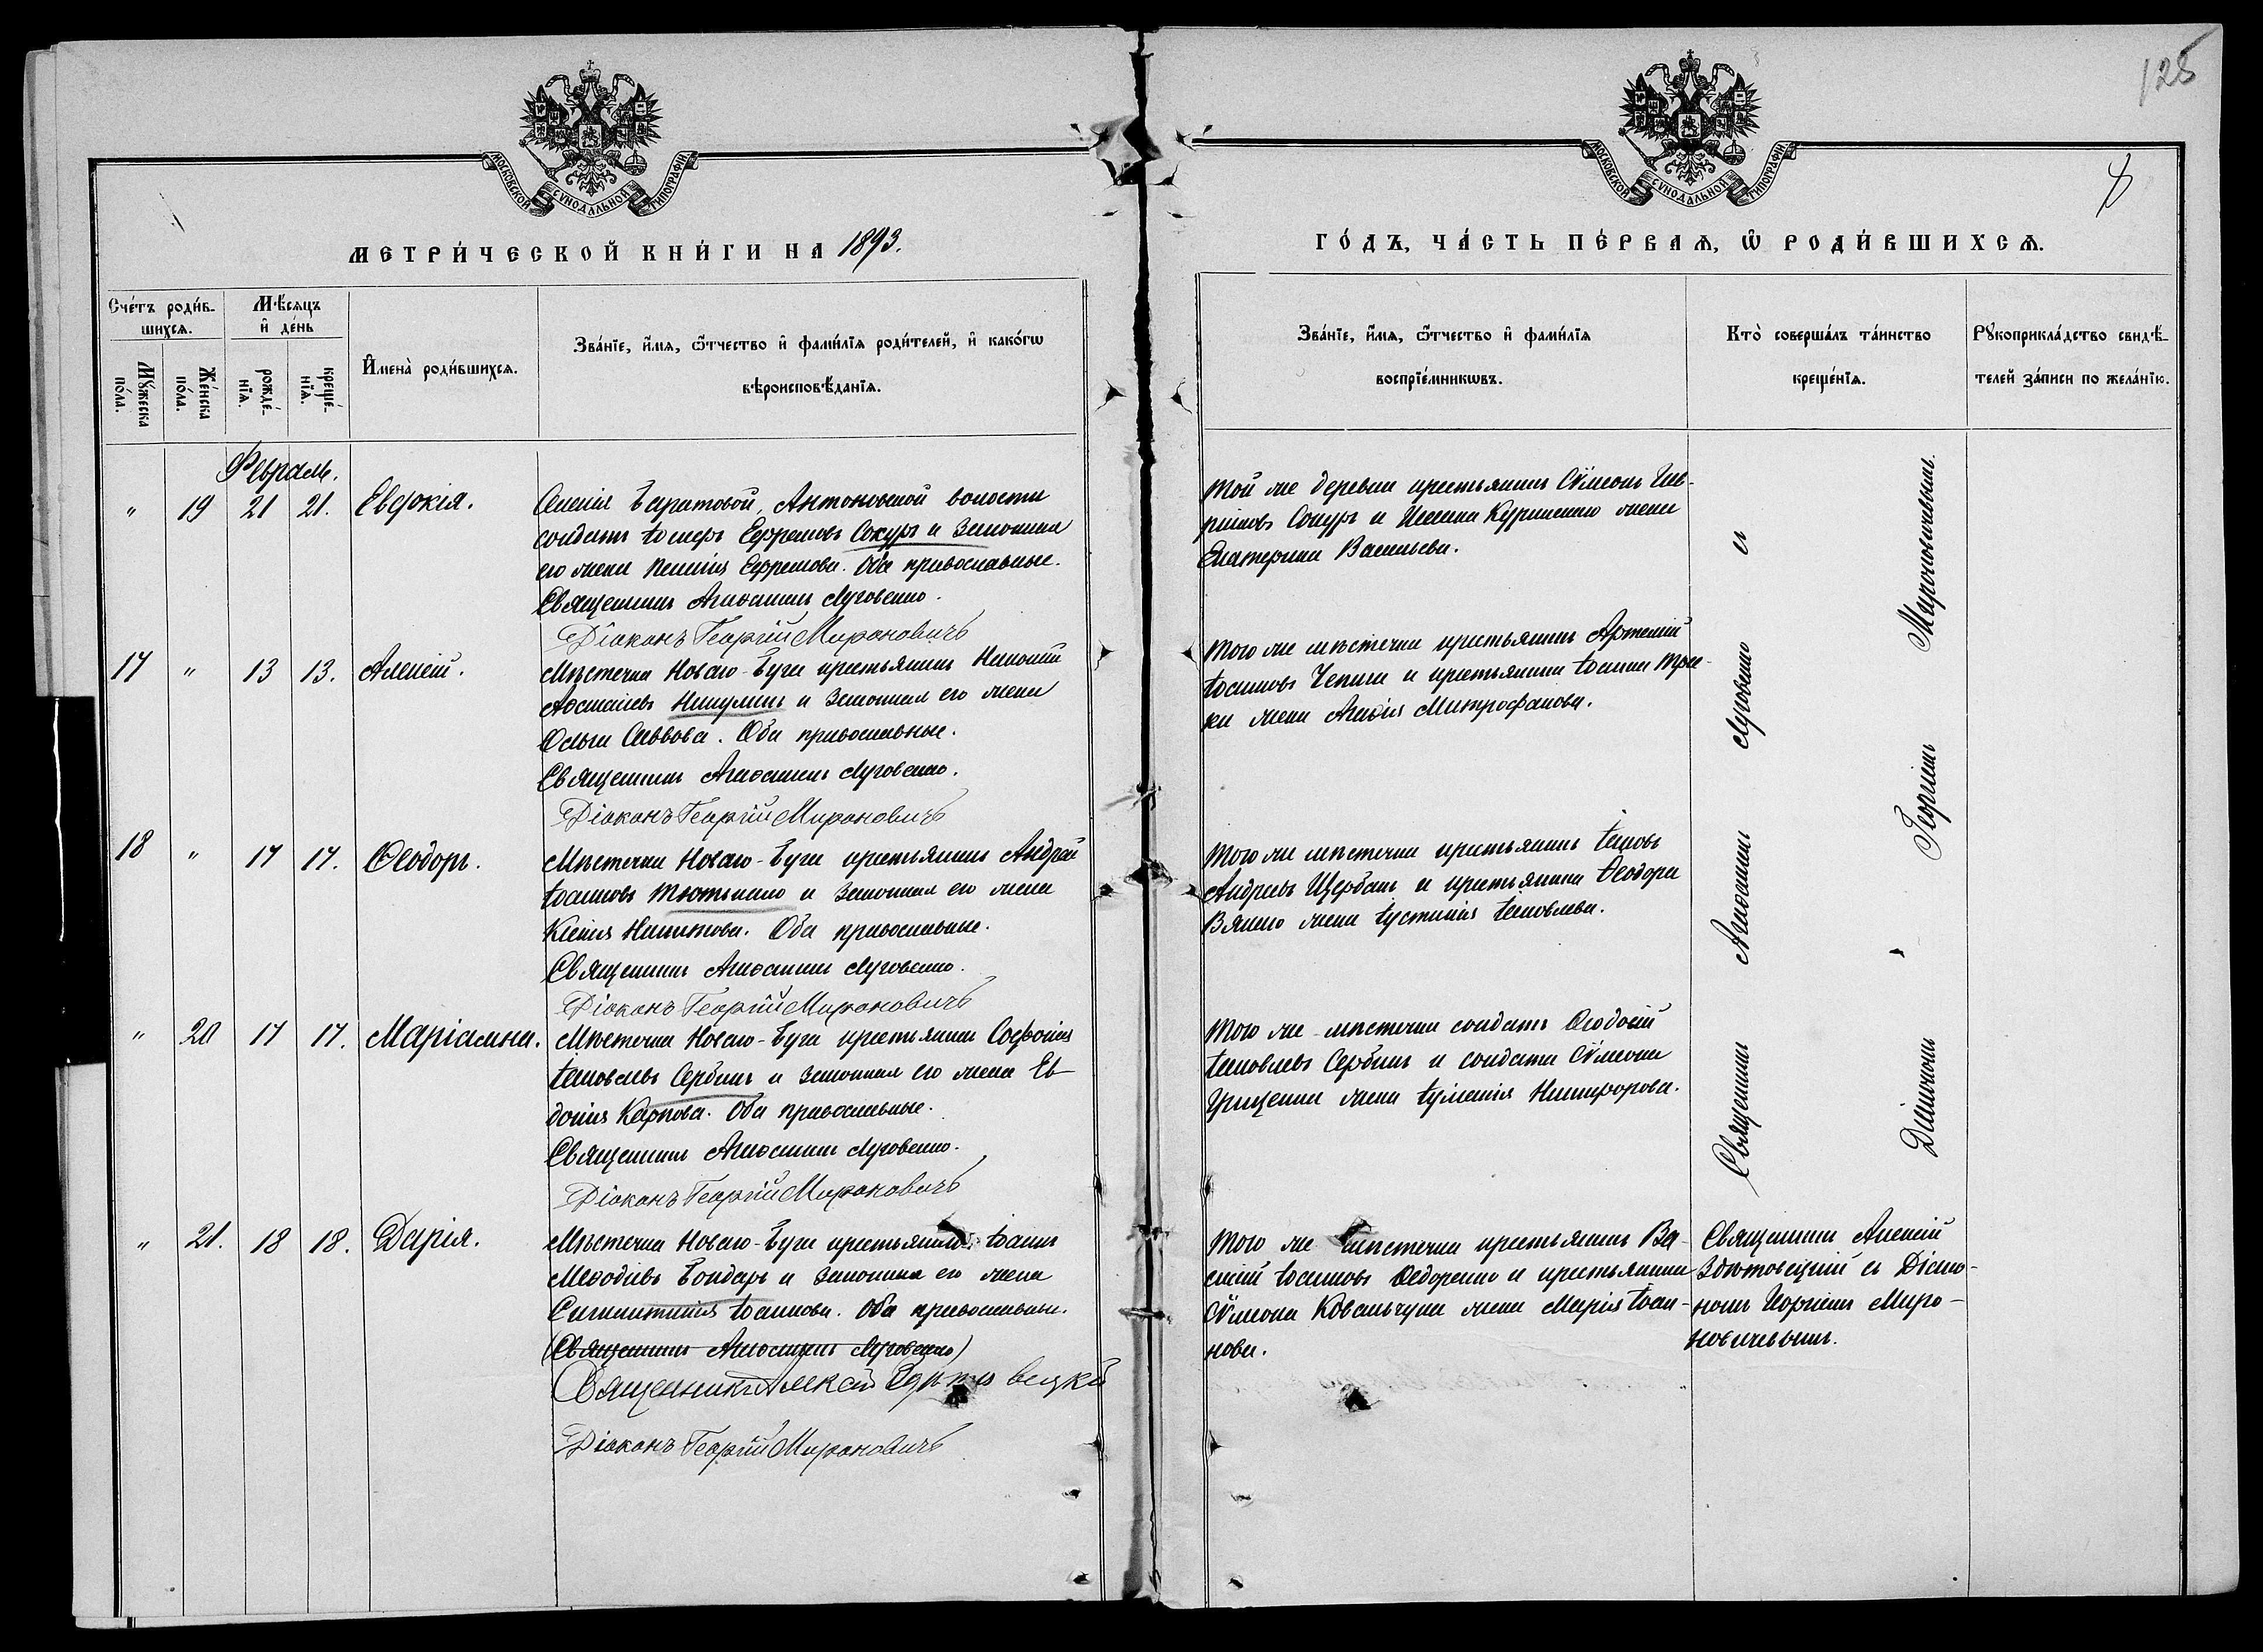 128
8
МОСКОВСКОЙ СѴНОДАЛЬНОЙ ТИПОГРАФІИ
МОСКОВСКОЙ СѴНОДАЛЬНОЙ ТИПОГРАФІИ
МЕТРИ́ЧЕСКОЙ КНИ́ГИ НА 1893.
ГО́ДЪ, ЧА́СТЬ ПЕ́РВАѦ, Ѡ РОДИ́ВШИХСѦ.
Счéтъ роди́в-
шихсѧ.
Мѣ́сѧцъ
и҆ де́нь
Мꙋ́жеска
по́ла.
Же́нска
по́ла.
рожде́-
нїѧ.
креще́-
нїѧ.
И҆мена̀ роди́вшихсѧ.
Зва́нїе, и҆́мѧ, ѻ҆́тчество и҆ фами́лїѧ роди́телей, и҆ како́гѡ
вѣроисповѣ́данїѧ.
Зва́нїе, и҆́мѧ, ѻ҆́тчество и҆ фами́лїѧ
воспрїе́мникѡвъ.
Кто̀ соверша́лъ та́инство
креще́нїѧ.
Рꙋкоприкла́дство свидѣ́-
телей за́писи по жела́нїю.
Февраль.
" 19 21 21. Евдокія.
Антоновской волости
солдатъ Ефремовъ Сокуръ и законная
его жена Ефремова. Оба православные.
Священникъ Луговенко.
Діаконъ Георгій Мироновичъ
Той же деревни крестьянинъ Сѵмеонъ
Сокуръ и жена
Екатерина Васильева.
17 " 13 13. Алексій.
Мѣстечка Новаго-Буга крестьянинъ
Никулинъ и законная его жена
Ольга Саввова. Оба православные.
Священникъ Луговенко.
Діаконъ Георгій Мироновичъ
Того же мѣстечка крестьянинъ Артемій
Іоанновъ Чепига и крестьянина Іоанна
жена Митрофанова.
18 " 17 17. Ѳеодоръ.
Мѣстечка Новаго-Буга крестьянинъ Андрей
Іоанновъ Тютюнько и законная его жена
Ксенія Никитова. Оба православные.
Священникъ Луговенко.
Діаконъ Георгій Мироновичъ
Того же мѣстечка крестьянинъ Іаковъ
Андреевъ Щербань и крестьянина Ѳеодора
жена Іустинія Іаковлева.
" 20 17 17. Маріамна.
Мѣстечка Новаго-Буга крестьянинъ Софроній
Іаковлевъ Сербинъ и законная его жена Ев-
докія Карпова. Оба православные.
Священникъ Луговенко.
Діаконъ Георгій Мироновичъ
Того же мѣстечка солдатъ Ѳеодосій
Іаковлевъ Сербинъ и солдата Сѵмеона
Грищенка жена Іуліанія Никифорова.
" 21. 18 18. Дарія.
Мѣстечка Новаго-Буга крестьянинъ Іоаннъ
Меѳодіевъ Бондарь и законная его жена
Іоаннова. Оба православные.
(Священникъ Луговенко)
Священникъ Алексій
Діаконъ Георгій Мироновичъ
Того же мѣстечка крестьянинъ Ва-
силій Іоанновъ Ѳедоренко и крестьянина
Сѵмеона Ковальчука жена Марія Іоан-
нова.
Священникъ Алексій
съ Діако-
номъ Георгіемъ Миро-
новичевымъ.
Священникъ Луговенко съ
Діакономъ Георгіемъ Мироновичевымъ.